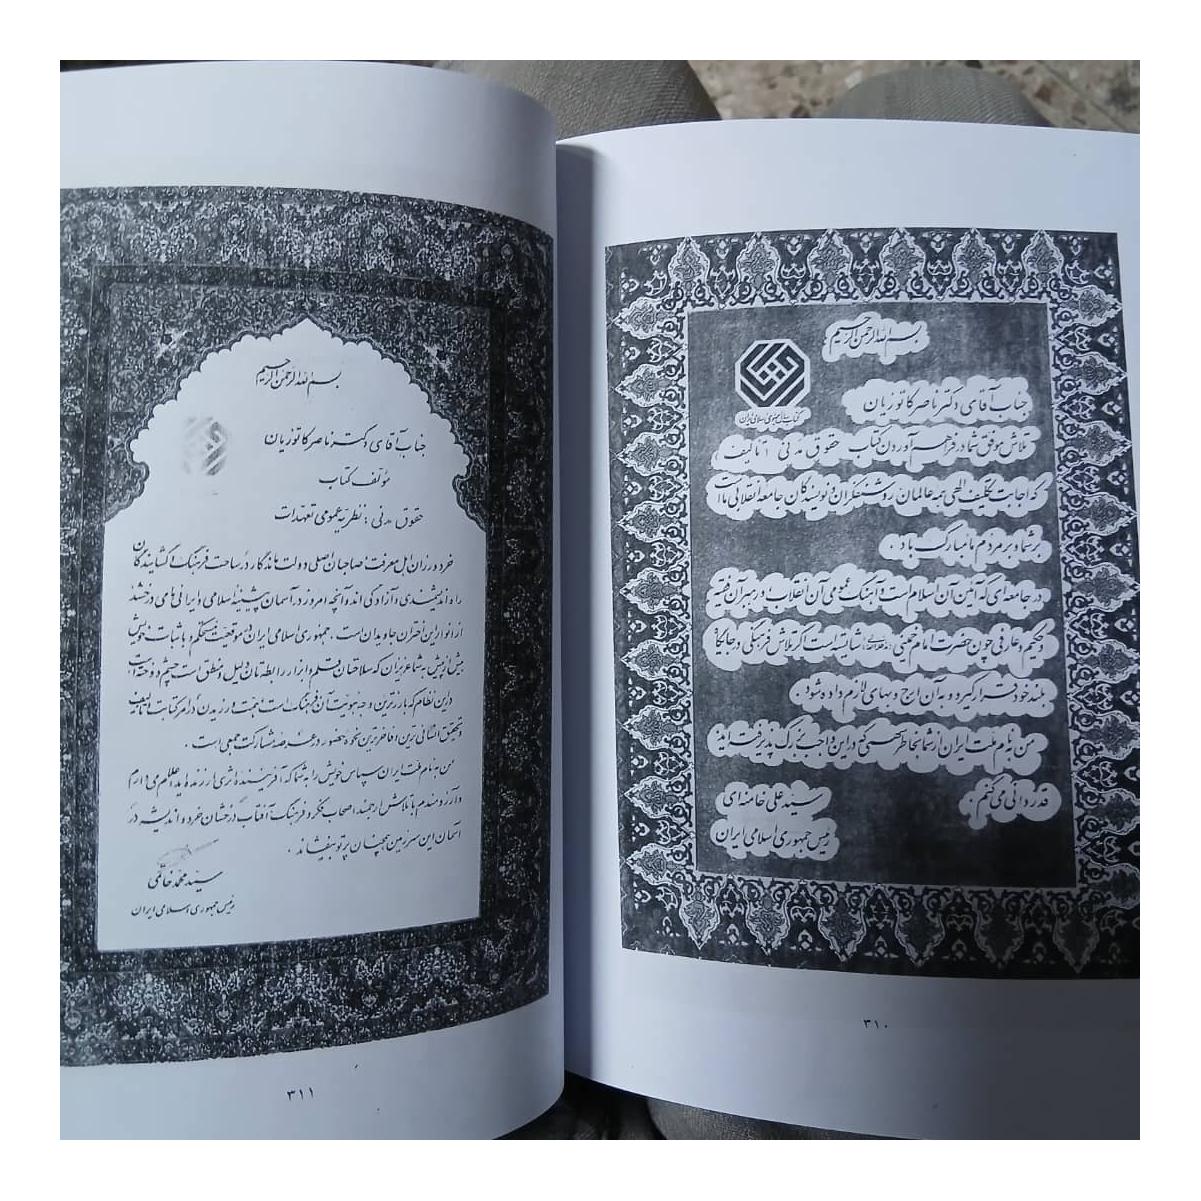 بسم الله الرحمن الرحیم
کتاب سال جمهوری اسلامی ایران
جناب آقای دکتر ناصر کاتوزیان
تلاش موفق شما در فراهم آوردن کتاب حقوق مدنی تألیف
که اجابت تکلیف الهی همه عالمان روشنفکران و نویسندگان جامعه انقلابی ما است
بر شما و بر مردم ما مبارک باد .
در جامعه‌ای که آئین آن اسلام است و آهنگ عمومی آن انقلاب و رهبر آن فقیه
و حکیم و عارفی چون حضرت امام خمینی شایسته است که تلاش فرهنگی در جایگاه
بلند خود قرار گیرد و به آن ارج و بهای لازم داده شود .
من بنام ملت ایران از شما بخاطر سهمی که در این واجب بزرگ پذیرفته‌اید
قدردانی می‌کنم .
سید علی خامنه‌ای
رئیس جمهوری اسلامی ایران
۳۱۰
بسم الله الرحمن الرحیم
جناب آقای دکتر ناصر کاتوزیان
مؤلف کتاب
حقوق مدنی : نظریه عمومی تعهدات
خردورزان اهل معرفت صاحبان اصلی دولت ماندگار در ساحت فرهنگ گشایندگان
راه اندیشندی و آزادگی اند و آنچه امروز در آسمان پیشینهٔ اسلامی و ایرانی ما می‌درخشد
از انوار این اختران جاویدان است . جمهوری اسلامی ایران در موقعیت و با ثبات خویش
بیش از پیش به شما عزیزان که سلاحتان قلم و ابزار رابطه‌تان دلیل و منطق است چشم دوخته است
در این نظام که بارزترین وجه هویت آن فرهنگ است همت ورزیدن در امر کتابت تألیف
و تحقیق انسانی‌ترین و فاخرترین نحوه حضور در عرصه مشارکت جمعی است .
من به نام ملت ایران سپاس خویش را به شما که آفریننده اثری ارزنده‌اید اعلام می‌دارم
و آرزومندم با تلاش ارجمند اصحاب فکر و فرهنگ آفتاب درخشان خرد و اندیشه در
آسمان این سرزمین همچنان پرتو بیفشاند .
سید محمد خاتمی
رئیس جمهوری اسلامی ایران
۳۱۱